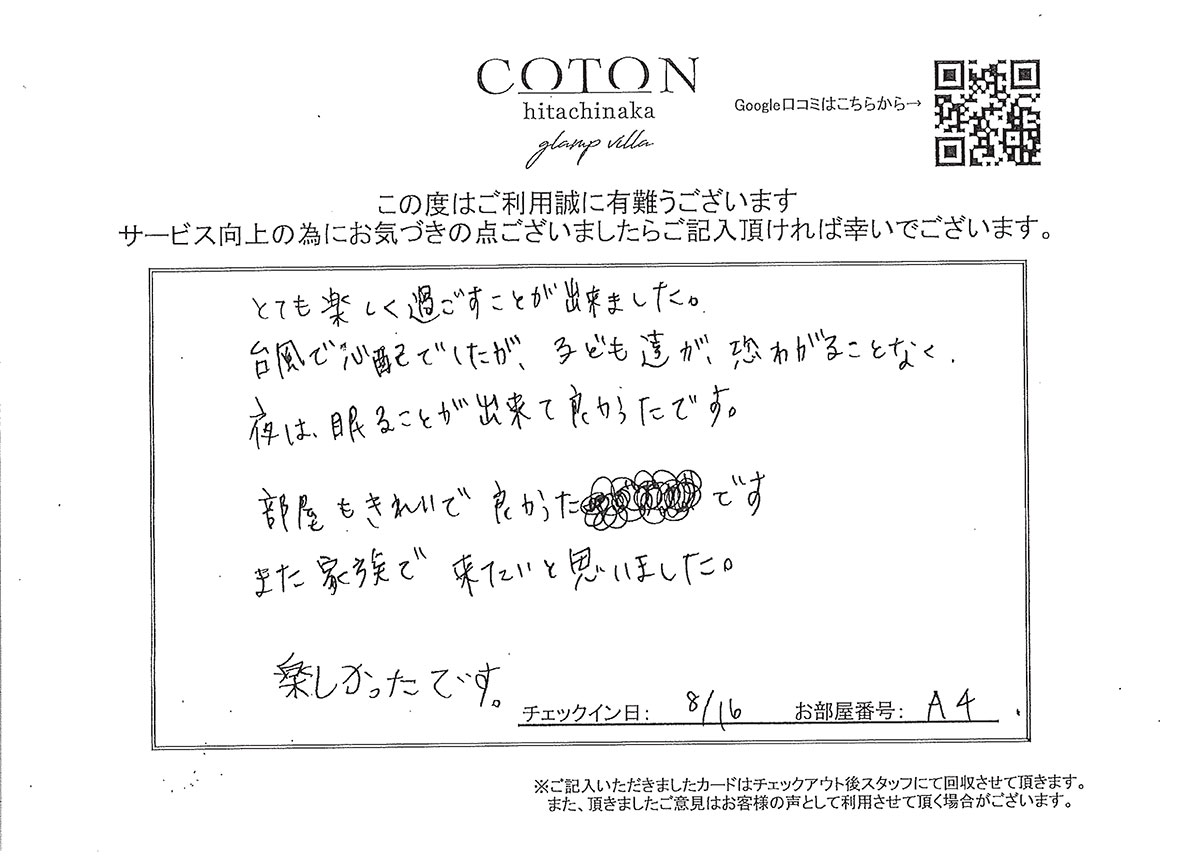 COTON
hitachinaka
glamp villa
Google口コミはこちらから→
この度はご利用誠に有難うございます
サービス向上の為にお気づきの点ございましたらご記入頂ければ幸いでございます。
とても楽しく過ごすことが出来ました。
台風で心配でしたが、子ども達が、恐わがることなく、
夜は、眠ることが出来て良かったです。
部屋もきれいで良かった です
また家族で来たいと思いました。
楽しかったです。
チェックイン日: 8/16 お部屋番号: A4
※ご記入いただきましたカードはチェックアウト後スタッフにて回収させて頂きます。
また、頂きましたご意見はお客様の声として利用させて頂く場合がございます。